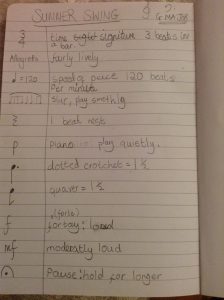 SUMMER SWING G MAJOR
3 4 time signature 3 beats in
a bar.
Allegretto fairly lively.
♩=120 speed of piece 120 beats
per minute
slur, play smoothly
1 beat rests
p piano = play quietly.
dotted crotchet = 1½
quaver = 1½
(forte)
f fortay: loud
mf moderatly loud
Pause: hold for longer